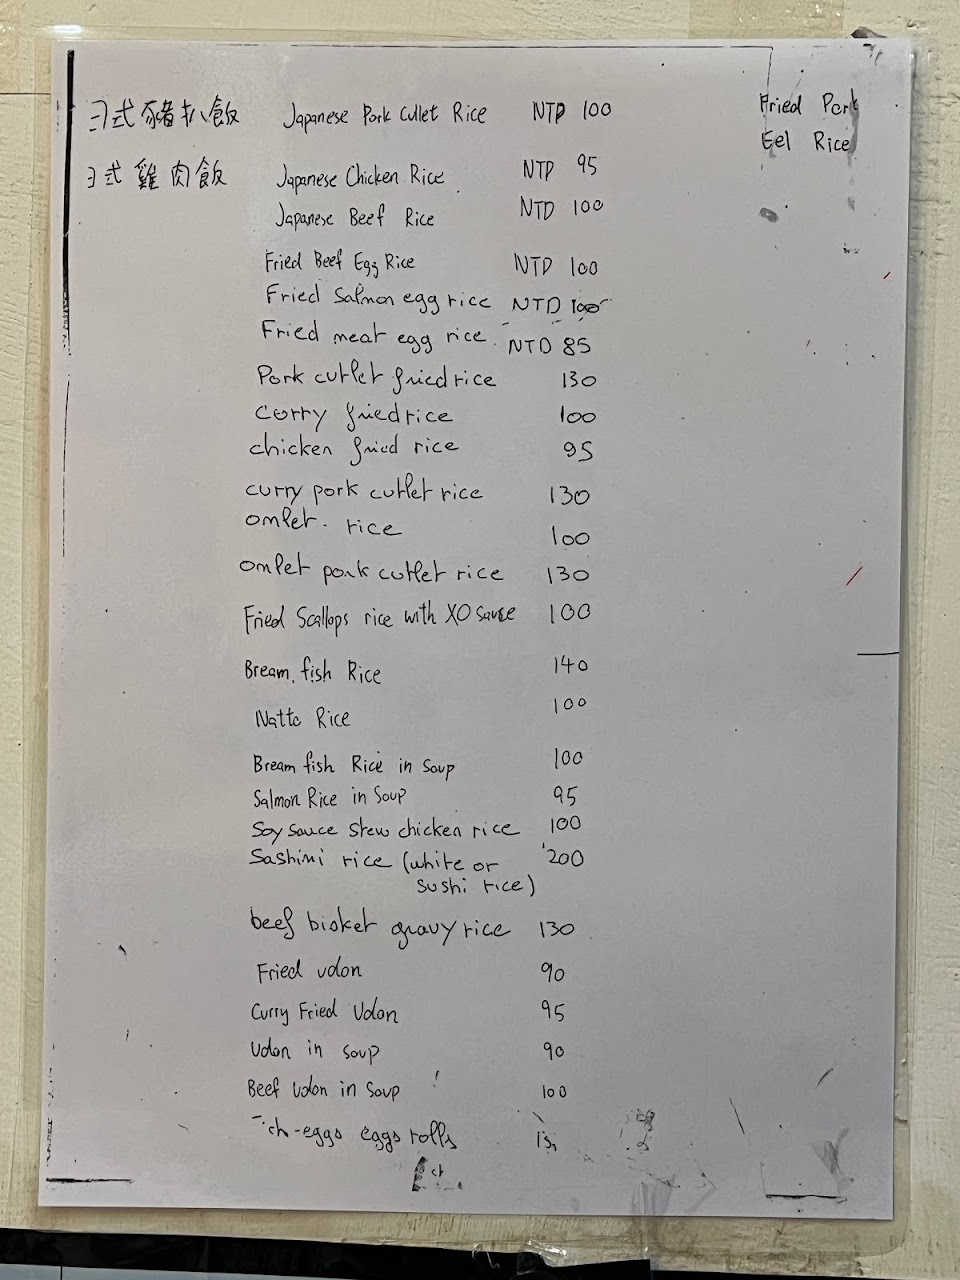 日式豬扒飯 Japanese Pork Cutlet Rice NTD 100
Fried Pork
Eel Rice
日式雞肉飯 Japanese Chicken Rice NTD 95
Japanese Beef Rice NTD 100
Fried Beef Egg Rice NTD 100
Fried Salmon egg rice NTD 100
Fried meat egg rice NTD 85
Pork cutlet fried rice 130
Curry fried rice 100
chicken fried rice 95
curry pork cutlet rice 130
omlet rice 100
omlet pork cutlet rice 130
Fried Scallops rice with XO sauce 100
Bream fish Rice 140
Natto Rice 100
Bream fish Rice in Soup 100
Salmon Rice in Soup 95
Soy sauce stew chicken rice 100
Sashimi rice (white or 200
sushi rice)
beef bisket gravy rice 130
Fried udon 90
Curry Fried Udon 95
Udon in soup 90
Beef Udon in Soup 100
eggs rolls